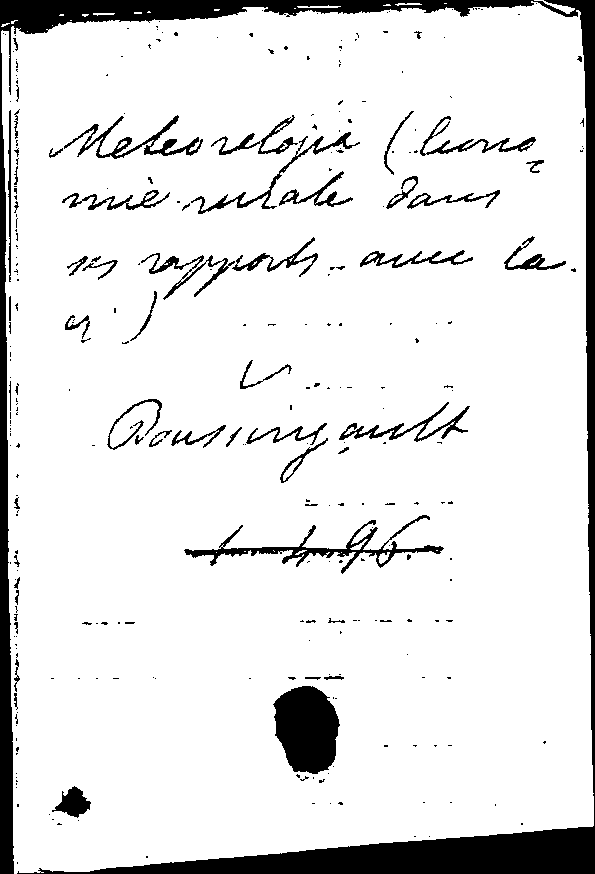 Meteorologia (Econo-
mie rurale dans
ses rapports avec la
V.
Boussingault
1496